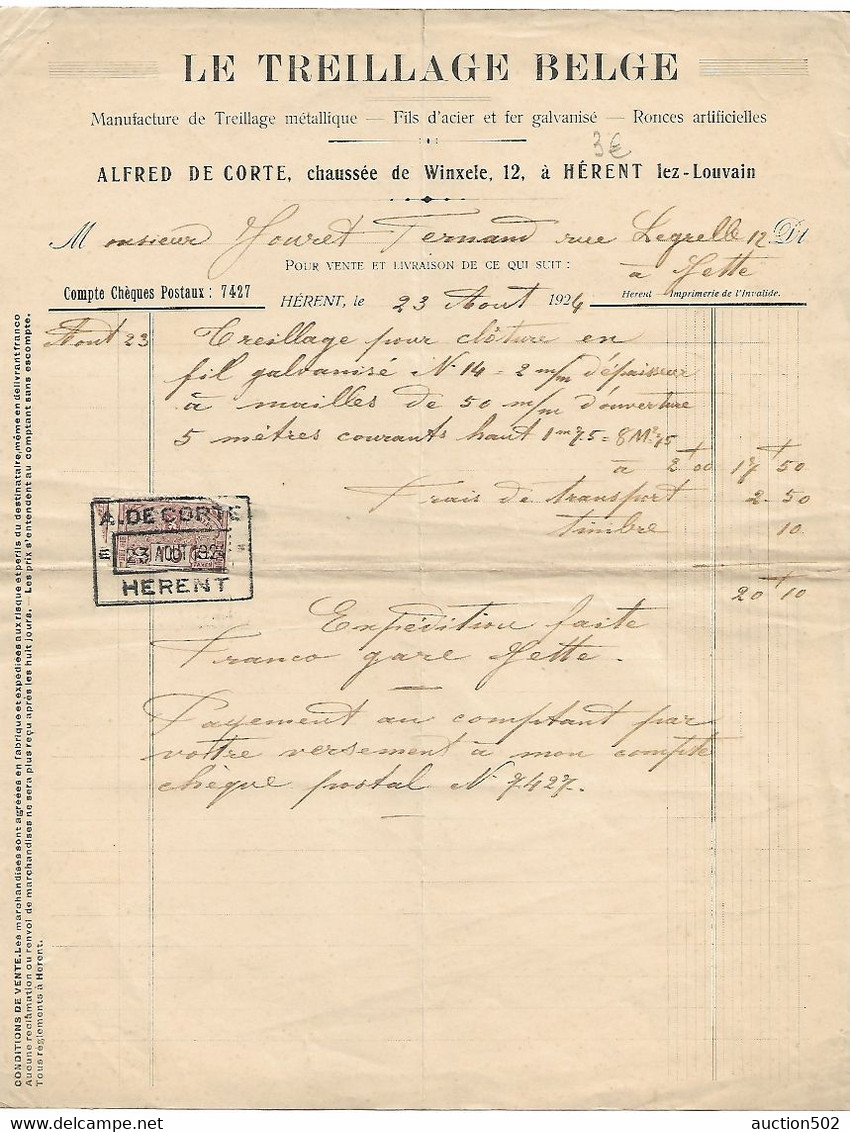 LE TREILLAGE BELGE
Manufacture de Treillage métallique — Fils d'acier et fer galvanisé — Ronces artificielles
3€
ALFRED DE CORTE, chaussée de Winxele, 12, à HÉRENT lez-Louvain
Monsieur Houret Fernand rue Legrelle 12 Dt
POUR VENTE ET LIVRAISON DE CE QUI SUIT :
à Jette
Compte Chèques Postaux : 7427
HÉRENT, le 23 Aout 1924
Herent — Imprimerie de l'Invalide.
Aout 23 Treillage pour clôture en
fil galvanisé N. 14 = 2 m/m d'épaisseur
à mailles de 50 m/m d'ouverture
5 mètres courants haut 1m75 = 8M²75
à 2 00 17 50
Frais de transport 2.50
timbre 10
20 10
A. DE CORTE
23 AOUT 1924
HERENT
Expédition faite
Franco gare Jette.
Payement au comptant par
vottre versement à mon compte
chèque postal N. 7427.
CONDITIONS DE VENTE. Les marchandises sont agréées en fabrique et expédiées aux risque et perils du destinataire, même en delivrant franco
Aucune reclâmation ou renvoi de marchandises ne sera plus reçu après les huit jours. — Les prix s'entendent au comptant sans escompte.
Tous règlements à Herent.
auction502